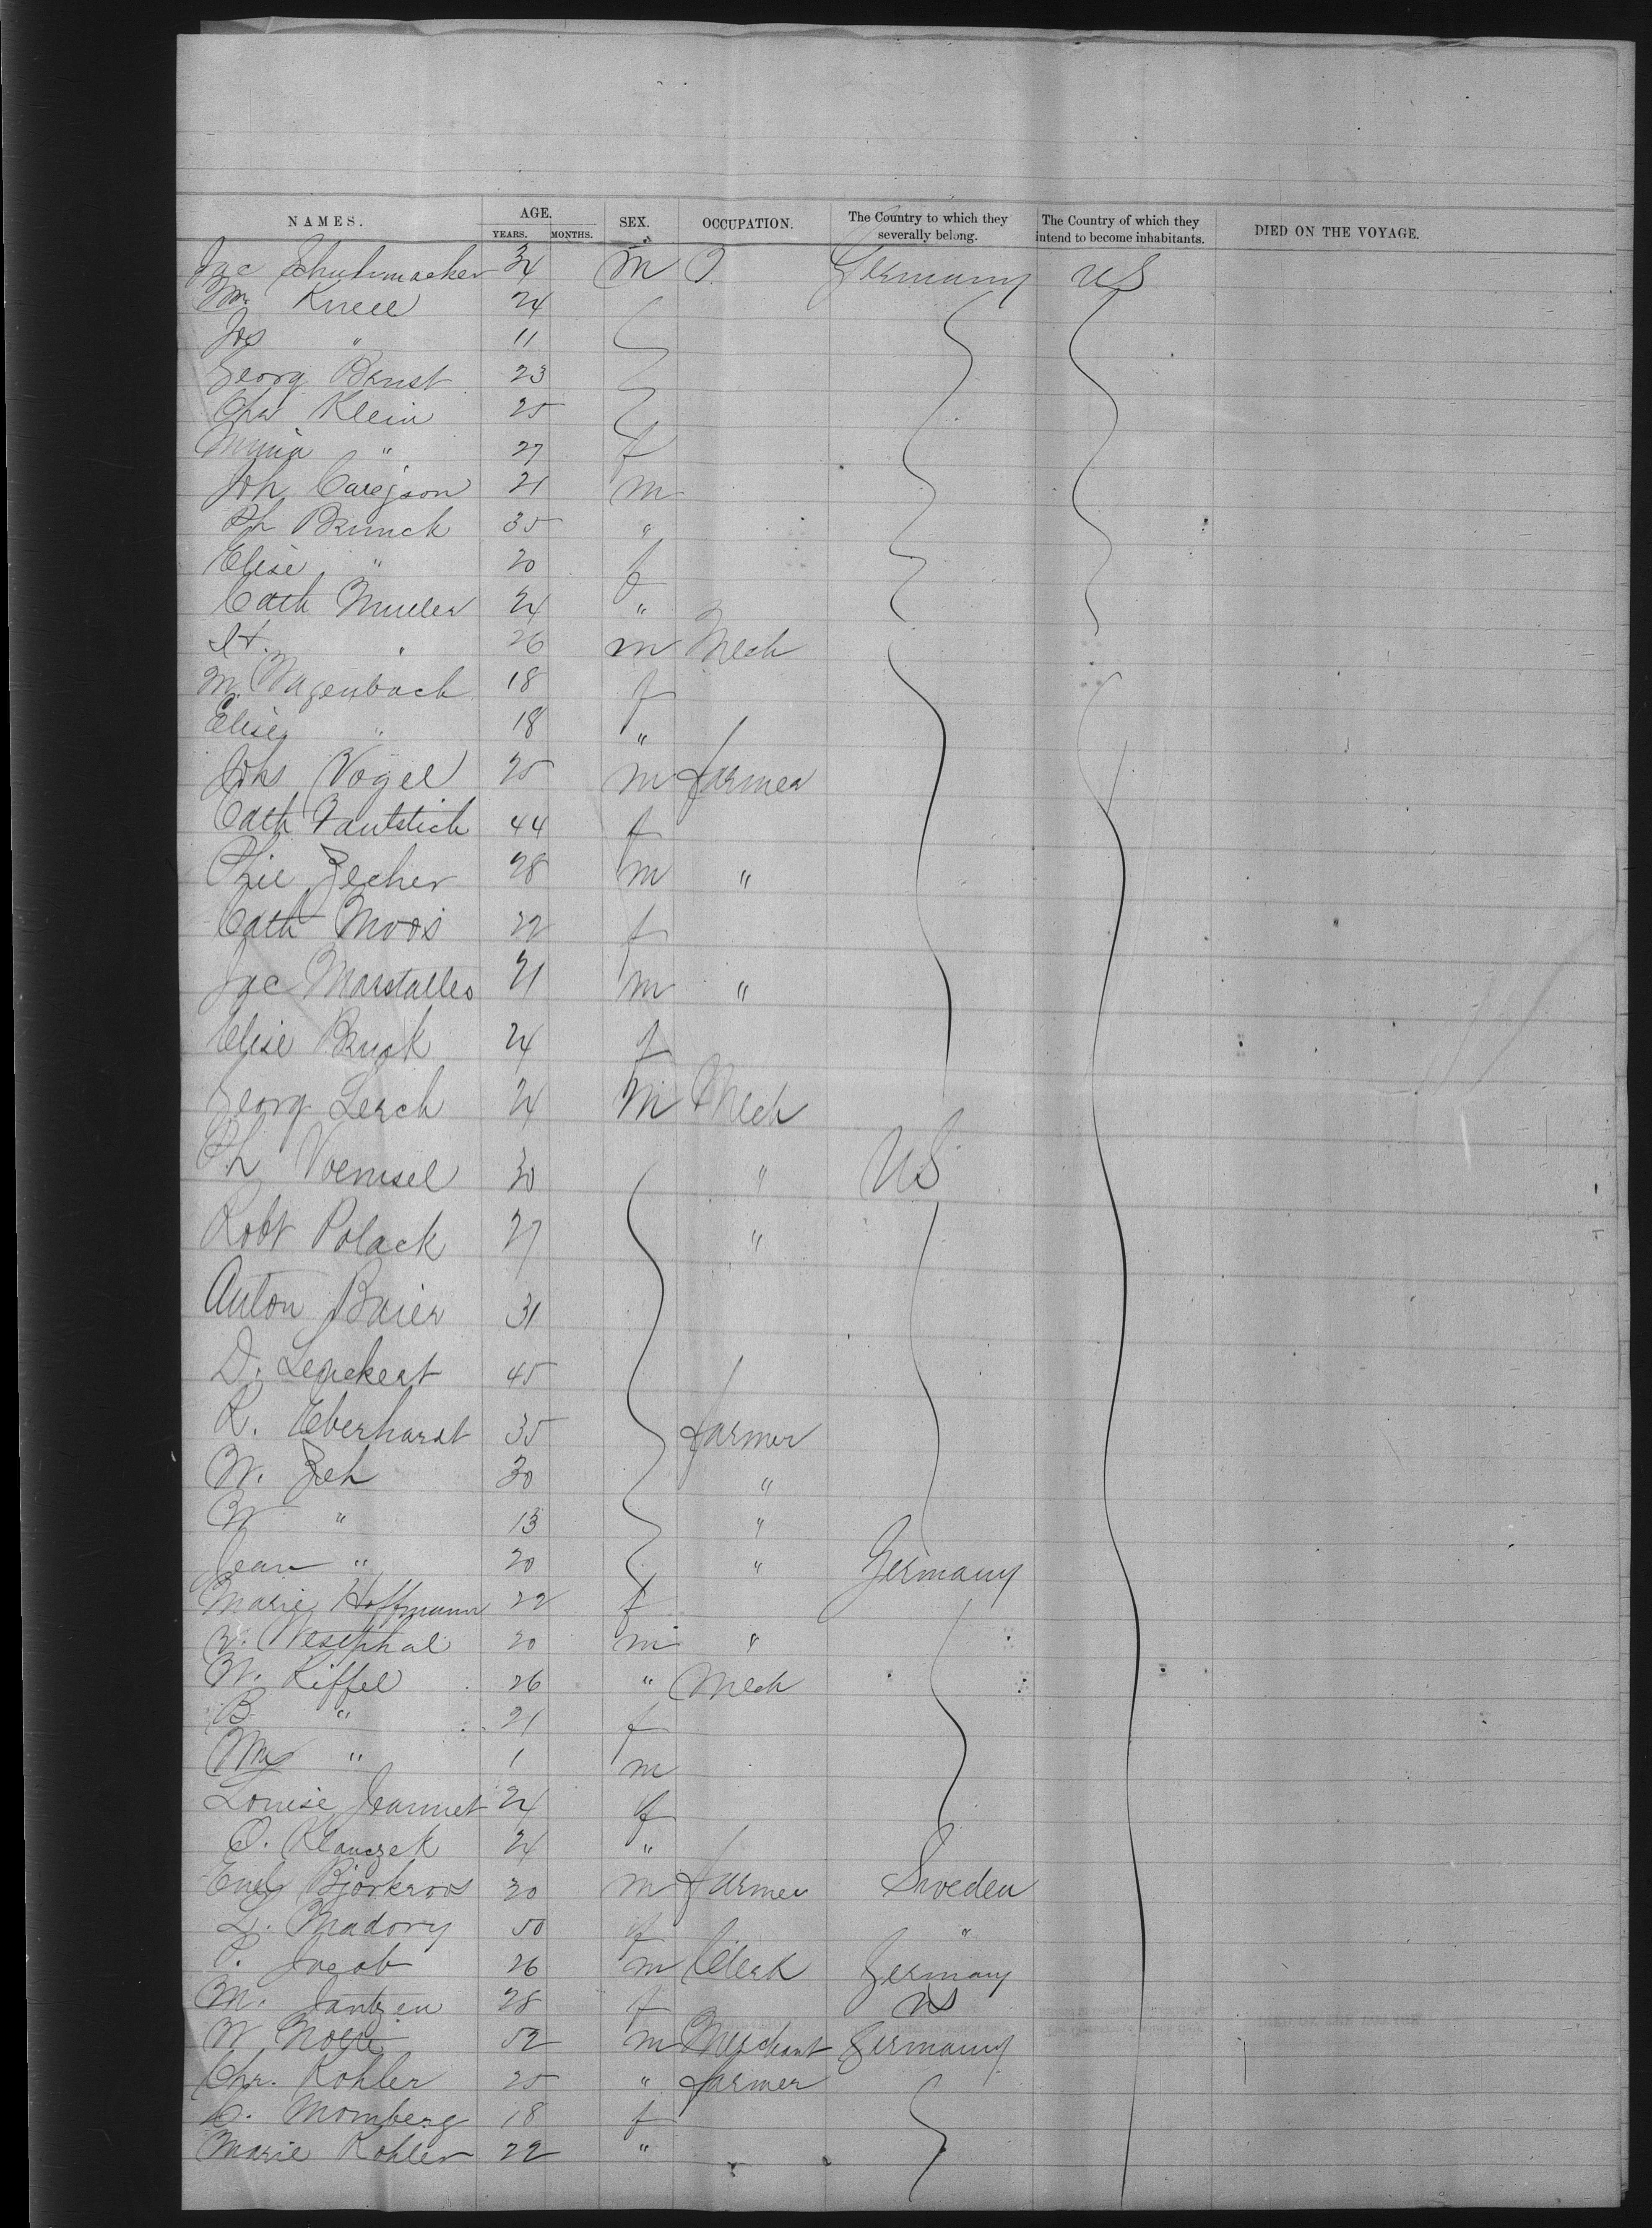 NAMES. AGE. SEX. OCCUPATION. The Country to which they severally belong. The Country of which they intend to become inhabitants. DIED ON THE VOYAGE.
YEARS. MONTHS.
Jac Schuhmacher 34 m O Germany US
Wm Knell 24
Jos " 11
Georg Ernst 23
Chas Klein 25
Minna " 27 f
Joh 21 m
Ph Brunck 35 "
Elise " 20 f
Cath Muller 24 "
" 26 m Mech
M. Wagenbach 18 f
Elise " 18 "
Johs Vogel 25 m farmer
Cath Faulstich 44 f
Phil Zecher 28 m "
Cath Moos 22 f
Jac Marstaller 21 m "
Elise Bruck 24 f
Georg Lerch 24 m Mech
Ph Voemsel 30 " US
Robt Polack 27 "
Anton Baier 31
D. Lenckert 45
R. Eberhardt 35 farmer
W. Zeh 30 "
W " 13 "
Jean " 20 " Germany
Marie Hoffmann 22 f
Westphal 20 m "
W. Riffel 26 " Mech
B. " 21 f
Wm " 1 m
Louise Jeannet 24 f
O. 24 "
Bjorkroos 30 m farmer Sweden
L. Madory 50 f "
P. Jacob 26 m Clerk Germany
M. Jantzen 28 f US
W Nolte 52 m Merchant Germany
Chr. Kohler 25 " farmer
C. Momberg 18 f
Marie Kohler 22 "